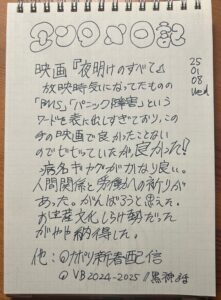 エンタメ日記
25
01
08
Wed
映画『夜明けのすべて』
放映時気になってたものの
「PMS」「パニック障害」という
ワードを表に出しすぎており、この
手の映画で良かったことない
のでもだもだしていたが、良かった!
病名ギャグがかなり良い。
人間関係と労働への祈りが
あった。がんばろうと思えた。
お土産文化しらけ勢だった
がやや納得した。
他:①
新春配信
②VB2024-2025//黒神話